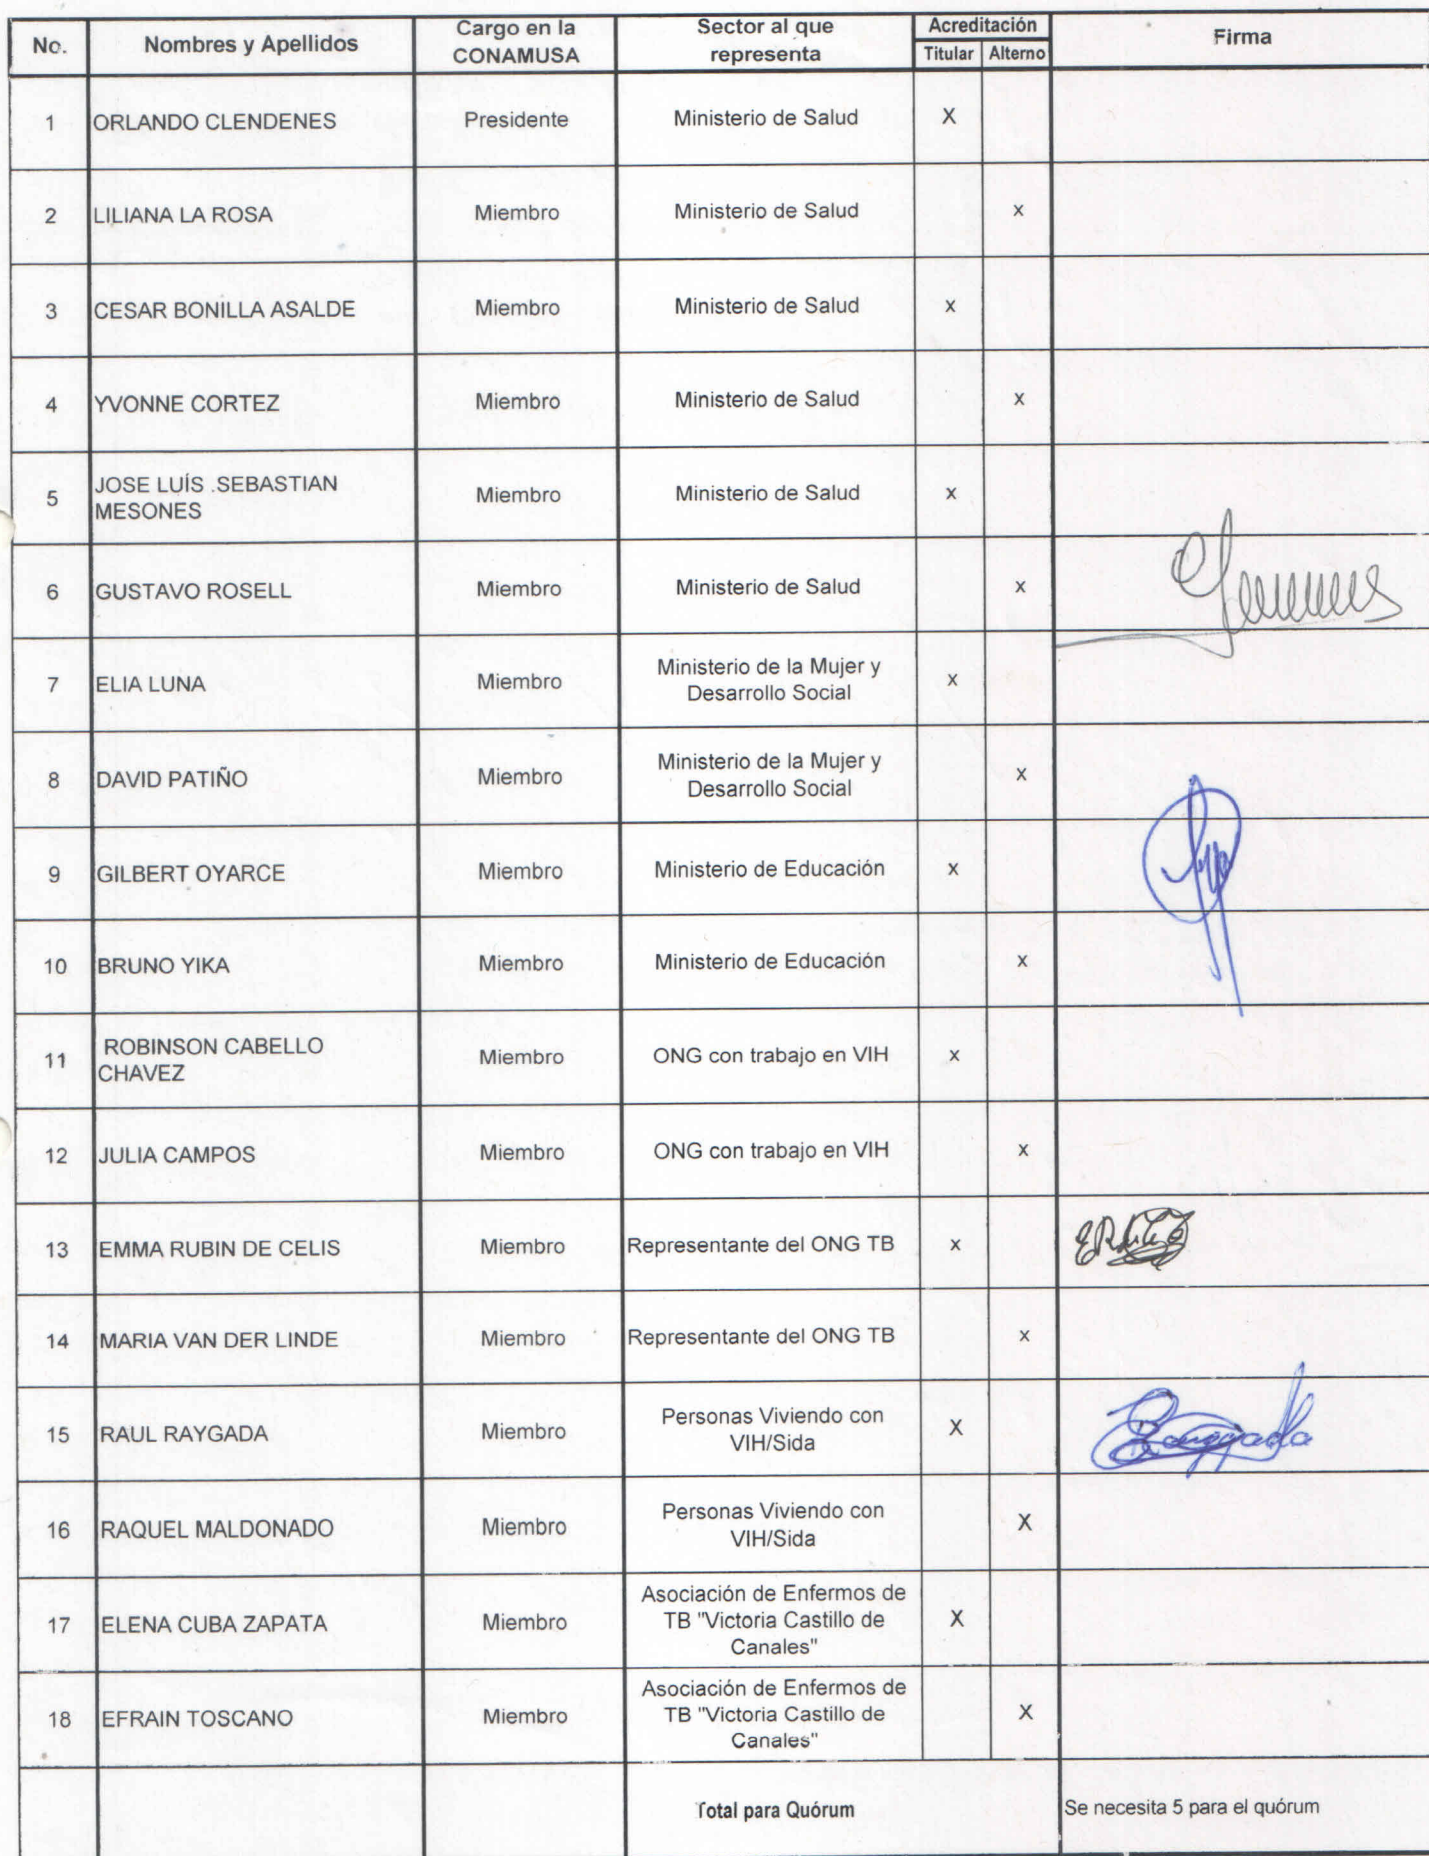 No. Nombres y Apellidos Cargo en la CONAMUSA Sector al que representa Acreditación Firma
Titular Alterno
1 ORLANDO CLENDENES Presidente Ministerio de Salud X
2 LILIANA LA ROSA Miembro Ministerio de Salud x
3 CESAR BONILLA ASALDE Miembro Ministerio de Salud x
4 YVONNE CORTEZ Miembro Ministerio de Salud x
5 JOSE LUÍS .SEBASTIAN MESONES Miembro Ministerio de Salud x
6 GUSTAVO ROSELL Miembro Ministerio de Salud x
7 ELIA LUNA Miembro Ministerio de la Mujer y Desarrollo Social x
8 DAVID PATIÑO Miembro Ministerio de la Mujer y Desarrollo Social x
9 GILBERT OYARCE Miembro Ministerio de Educación x
10 BRUNO YIKA Miembro Ministerio de Educación x
11 ROBINSON CABELLO CHAVEZ Miembro ONG con trabajo en VIH x
12 JULIA CAMPOS Miembro ONG con trabajo en VIH x
13 EMMA RUBIN DE CELIS Miembro Representante del ONG TB x
14 MARIA VAN DER LINDE Miembro Representante del ONG TB x
15 RAUL RAYGADA Miembro Personas Viviendo con VIH/Sida X
16 RAQUEL MALDONADO Miembro Personas Viviendo con VIH/Sida X
17 ELENA CUBA ZAPATA Miembro Asociación de Enfermos de TB "Victoria Castillo de Canales" X
18 EFRAIN TOSCANO Miembro Asociación de Enfermos de TB "Victoria Castillo de Canales" X
Total para Quórum Se necesita 5 para el quórum